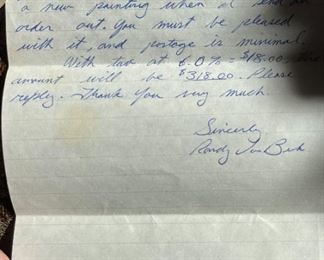 a new painting when I send an
order out. You must be pleased
with it, and postage is minimal.
With tax at 6.0% = $18.00. The
amount will be $318.00. Please
reply. Thank you very much.
Sincerely
Randy